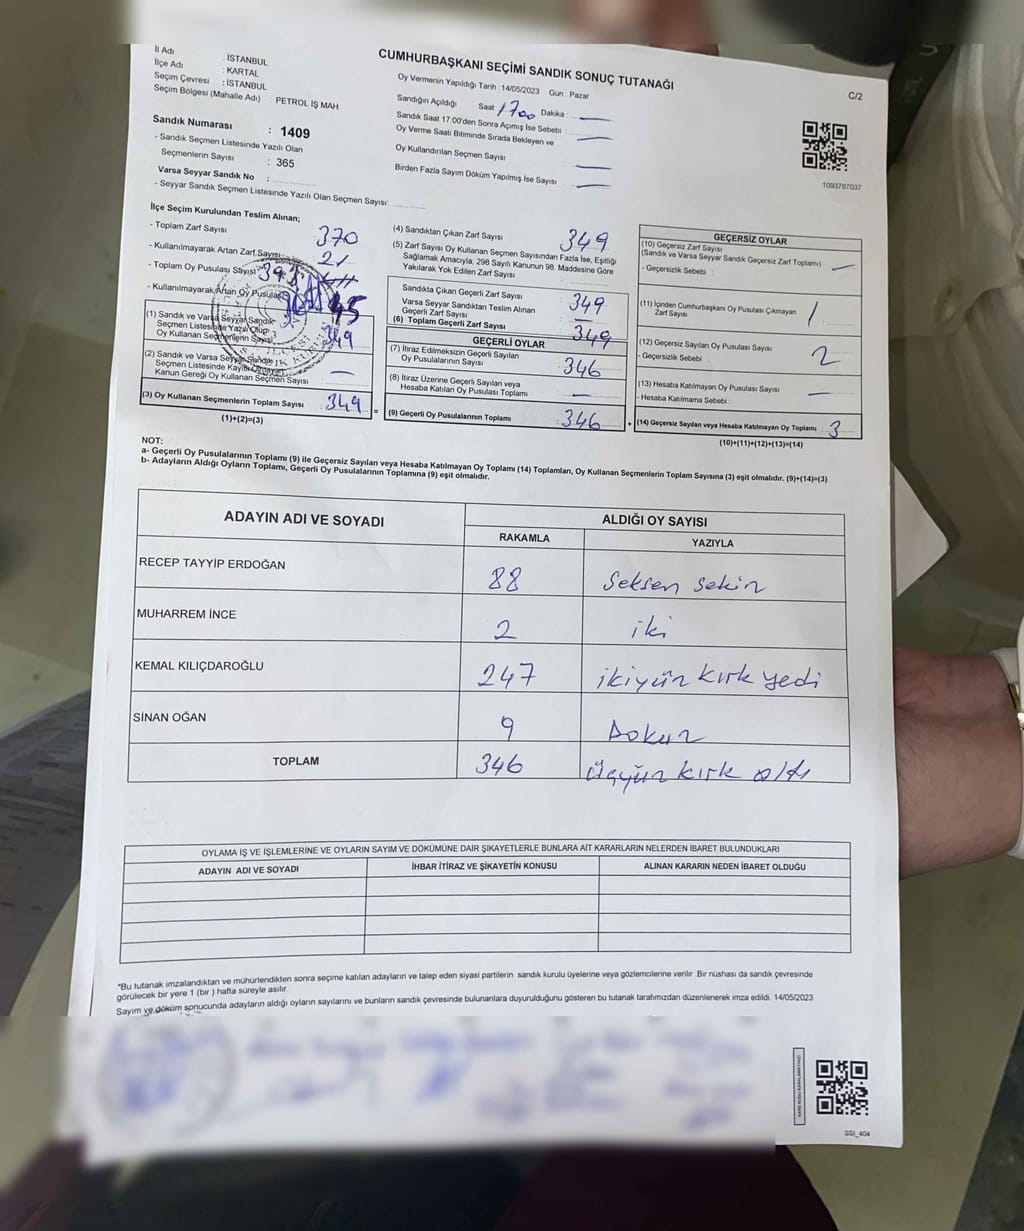 CUMHURBAŞKANI SEÇİMİ SANDIK SONUÇ TUTANAĞI
C/2
İl Adı : İSTANBUL
İlçe Adı : KARTAL
Seçim Çevresi : İSTANBUL
Seçim Bölgesi (Mahalle Adı) : PETROL İŞ MAH
Sandık Numarası : 1409
- Sandık Seçmen Listesinde Yazılı Olan
Seçmenlerin Sayısı : 365
Varsa Seyyar Sandık No :
- Seyyar Sandık Seçmen Listesinde Yazılı Olan Seçmen Sayısı:
Oy Vermenin Yapıldığı Tarih : 14/05/2023 Gün : Pazar
Sandığın Açıldığı Saat 1700 Dakika :
Sandık Saat 17.00'den Sonra Açımış İse Sebebi :
Oy Verme Saati Bitiminde Sırada Bekleyen ve
Oy Kullandırılan Seçmen Sayısı :
Birden Fazla Sayım Döküm Yapılmış İse Sayısı :
1093787037
İlçe Seçim Kurulundan Teslim Alınan;
- Toplam Zarf Sayısı : 370
- Kullanılmayarak Artan Zarf Sayısı : 21
- Toplam Oy Pusulası Sayısı
- Kullanılmayarak Artan Oy Pusulası 45
(1) Sandık ve Varsa Seyyar Sandık
Seçmen Listesinde Yazılı Olup
Oy Kullanan Seçmenlerin Sayısı 349
(2) Sandık ve Varsa Seyyar Sandık
Seçmen Listesinde Kayıtlı Olmayan
Kanun Gereği Oy Kullanan Seçmen Sayısı : —
(3) Oy Kullanan Seçmenlerin Toplam Sayısı : 349
(1)+(2)=(3)
(4) Sandıktan Çıkan Zarf Sayısı 349
(5) Zarf Sayısı Oy Kullanan Seçmen Sayısından Fazla İse, Eşitliği
Sağlamak Amacıyla; 298 Sayılı Kanunun 98. Maddesine Göre
Yakılarak Yok Edilen Zarf Sayısı
Sandıkta Çıkan Geçerli Zarf Sayısı : 349
Varsa Seyyar Sandıktan Teslim Alınan
Geçerli Zarf Sayısı : —
(6) Toplam Geçerli Zarf Sayısı : 349
GEÇERLİ OYLAR
(7) İtiraz Edilmeksizin Geçerli Sayılan
Oy Pusulalarının Sayısı : 346
(8) İtiraz Üzerine Geçerli Sayılan veya
Hesaba Katılan Oy Pusulası Toplamı : —
(9) Geçerli Oy Pusulalarının Toplamı : 346
GEÇERSİZ OYLAR
(10) Geçersiz Zarf Sayısı
(Sandık ve Varsa Seyyar Sandık Geçersiz Zarf Toplamı) : —
- Geçersizlik Sebebi :
(11) İçinden Cumhurbaşkanı Oy Pusulası Çıkmayan
Zarf Sayısı : 1
(12) Geçersiz Sayılan Oy Pusulası Sayısı : 2
- Geçersizlik Sebebi :
(13) Hesaba Katılmayan Oy Pusulası Sayısı : —
- Hesaba Katılmama Sebebi :
(14) Geçersiz Sayılan veya Hesaba Katılmayan Oy Toplamı : 3
(10)+(11)+(12)+(13)=(14)
NOT:
a- Geçerli Oy Pusulalarının Toplamı (9) ile Geçersiz Sayılan veya Hesaba Katılmayan Oy Toplamı (14) Toplamları, Oy Kullanan Seçmenlerin Toplam Sayısına (3) eşit olmalıdır. (9)+(14)=(3)
b- Adayların Aldığı Oyların Toplamı, Geçerli Oy Pusulalarının Toplamına (9) eşit olmalıdır.
ADAYIN ADI VE SOYADI ALDIĞI OY SAYISI
RAKAMLA YAZIYLA
RECEP TAYYİP ERDOĞAN 88 Seksen sekiz
MUHARREM İNCE 2 iki
KEMAL KILIÇDAROĞLU 247 ikiyüz kırk yedi
SİNAN OĞAN 9 Dokuz
TOPLAM 346 üçyüz kırk altı
OYLAMA İŞ VE İŞLEMLERİNE VE OYLARIN SAYIM VE DÖKÜMÜNE DAİR ŞİKAYETLERLE BUNLARA AİT KARARLARIN NELERDEN İBARET BULUNDUKLARI
ADAYIN ADI VE SOYADI İHBAR İTİRAZ VE ŞİKAYETİN KONUSU ALINAN KARARIN NEDEN İBARET OLDUĞU
*Bu tutanak imzalandıktan ve mühürlendikten sonra seçime katılan adayların ve talep eden siyasi partilerin sandık kurulu üyelerine veya gözlemcilerine verilir. Bir nüshası da sandık çevresinde
görülecek bir yere 1 (bir ) hafta süreyle asılır.
Sayım ve döküm sonucunda adayların aldığı oyların sayılarını ve bunların sandık çevresinde bulunanlara duyurulduğunu gösteren bu tutanak tarafımızdan düzenlenerek imza edildi. 14/05/2023
SSI_404